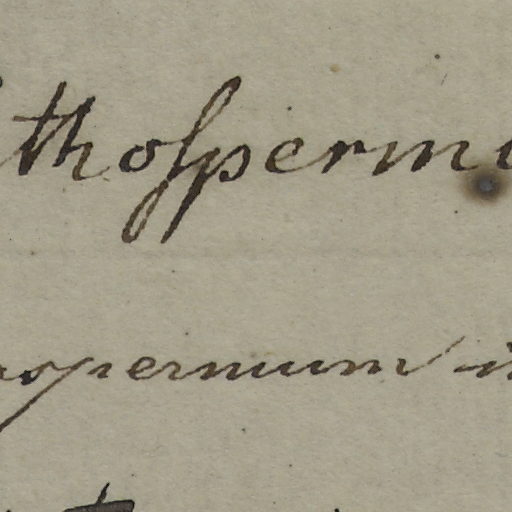 thoſpermu
ospermum